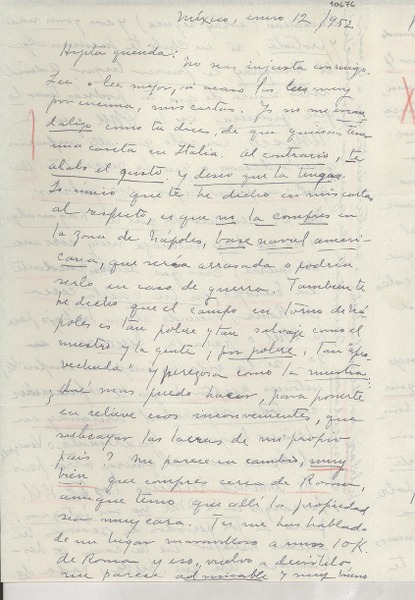 10676
México, enero 12/1952
Hijita querida:
No seas injusta conmigo.
Lee o lee mejor, si acaso las lees muy
por encima, mis cartas. Yo no me escan
dalizo como tu dices, de que quieras tener
una casita en Italia. Al contrario, te
alabo el gusto y deseo que la tengas.
Lo único que te he dicho en mis cartas
al respecto, es que no la compres en
la zona de Nápoles, base naval ameri-
cana, que sería arrasada o podría
serlo en caso de guerra. Tambien te
he dicho que el campo en torno de Ná
poles es tan pobre y tan salvaje como el
nuestro y la gente, por pobre, tan
vechada" y peligrosa como la nuestra.
¿Qué mas puedo hacer, para ponerte
en relieve esos inconvenientes, que
subrayar las lacras de mi propio
país? Me parece en cambio, muy
bien que compres cerca de Roma,
aunque temo que allí la propiedad
sea muy cara. Tu me has hablado
de un lugar maravilloso a unos 10 K.
de Roma y eso, vuelvo a decirtelo
me parece admirable y muy bueno